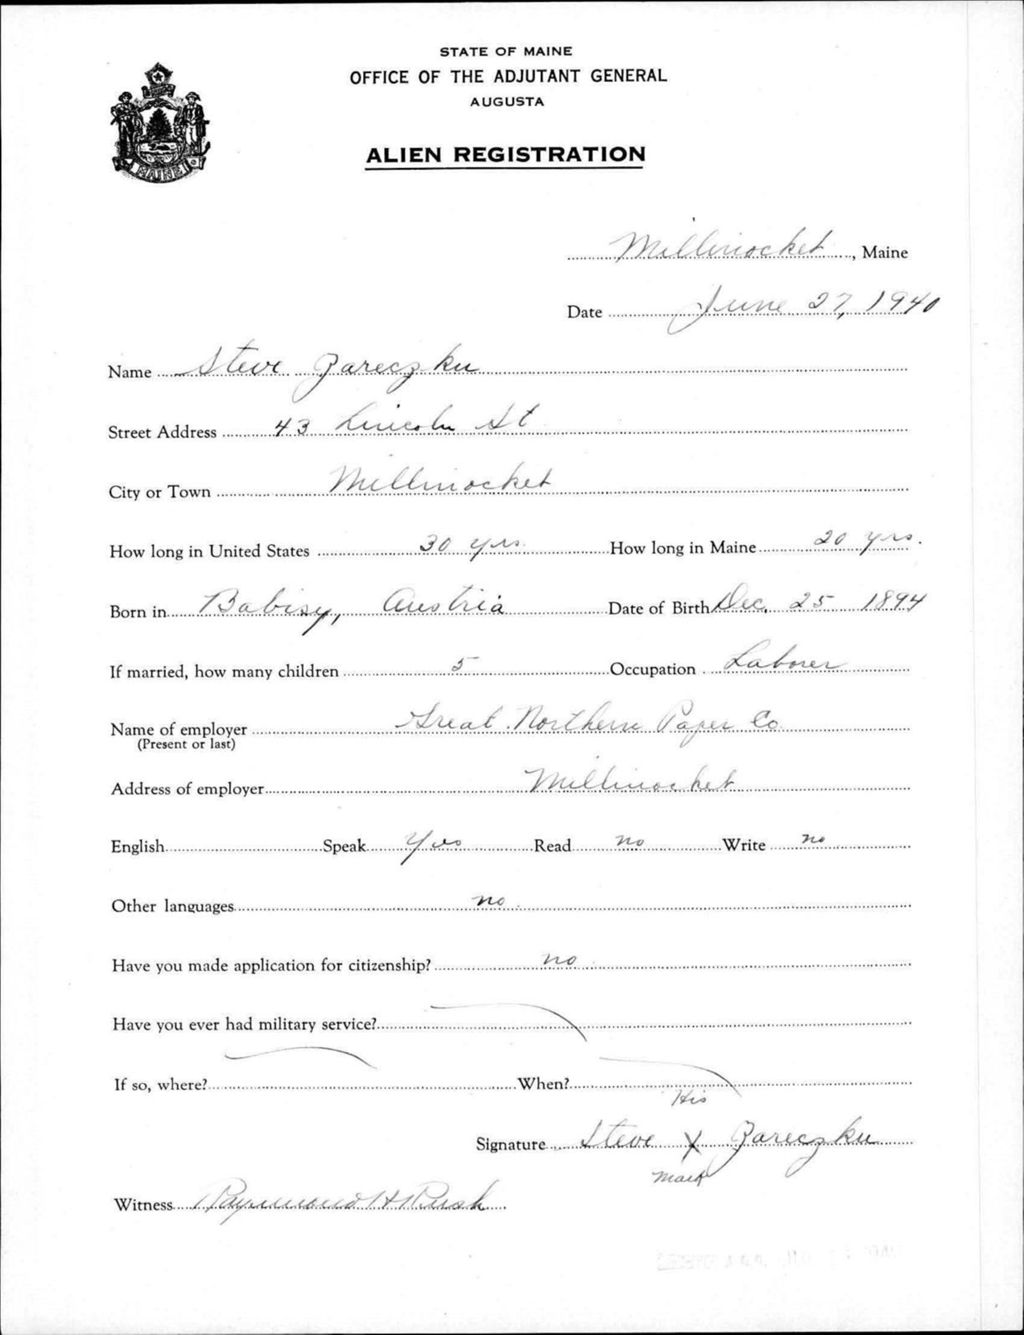 STATE OF MAINE
OFFICE OF THE ADJUTANT GENERAL
AUGUSTA
MAINE
ALIEN REGISTRATION
Millinocket, Maine
Date June 27, 1940
Name Steve Zareczku
Street Address 43 Lincoln St
City or Town Millinocket
How long in United States 30 yrs. How long in Maine 20 yrs.
Born in Babisy, Austria Date of Birth Dec. 25 1894
If married, how many children 5 Occupation Laborer
Name of employer Great Northern Paper Co
(Present or last)
Address of employer Millinocket
English Speak Yes Read no Write no
Other languages no
Have you made application for citizenship? no
Have you ever had military service?
If so, where? When?
His
Signature Steve X Zareczku
mark
Witness Raymond H Rush